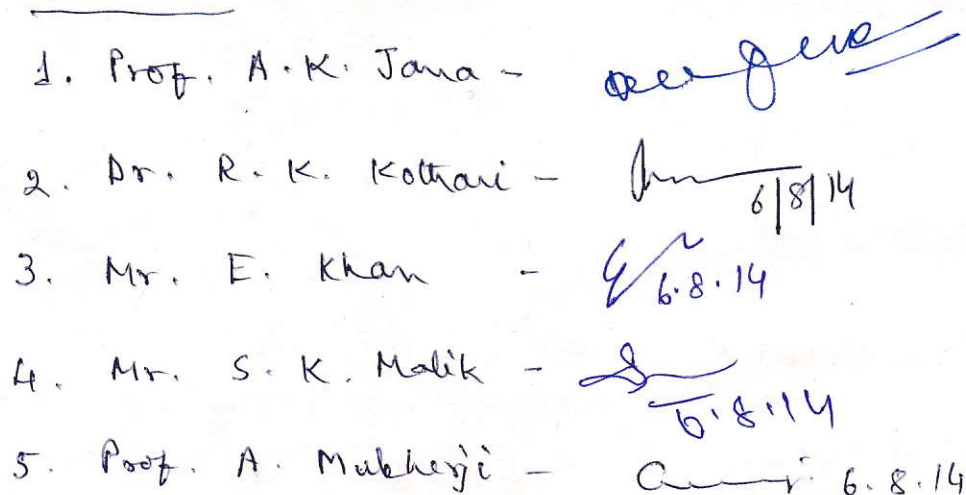 1. Prof. A. K. Jana -
2. Dr. R. K. Kothari - 6/8/14
3. Mr. E. Khan - 6.8.14
4. Mr. S. K. Malik - 6.8.14
5. Prof. A. Mukherji - 6.8.14